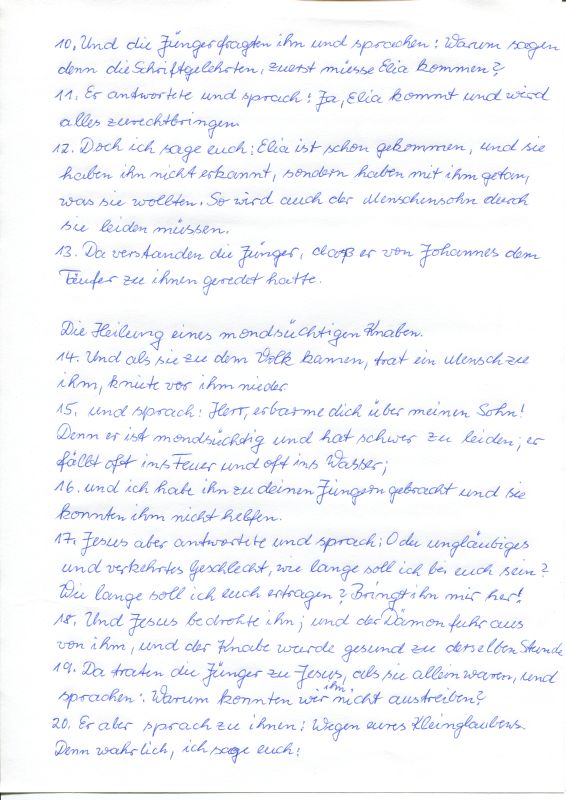 10. Und die Jünger fragten ihn und sprachen: Warum sagen
denn die Schriftgelehrten, zuerst müsse Elia kommen?
11. Er antwortete und sprach: Ja, Elia kommt und wird
alles zurechtbringen.
12. Doch ich sage euch: Elia ist schon gekommen, und sie
haben ihn nicht erkannt, sondern haben mit ihm getan,
was sie wollten. So wird auch der Menschensohn durch
sie leiden müssen.
13. Da verstanden die Jünger, daß er von Johannes dem
Täufer zu ihnen geredet hatte.
Die Heilung eines mondsüchtigen Knaben.
14. Und als sie zu dem Volk kamen, trat ein Mensch zu
ihm, kniete vor ihm nieder
15. und sprach: Herr, erbarme dich über meinen Sohn!
Denn er ist mondsüchtig und hat schwer zu leiden; er
fällt oft ins Feuer und oft ins Wasser;
16. und ich habe ihn zu deinen Jüngern gebracht und sie
konnten ihm nicht helfen.
17. Jesus aber antwortete und sprach: O du ungläubiges
und verkehrtes Geschlecht, wie lange soll ich bei euch sein?
Wie lange soll ich euch ertragen? Bringt ihn mir her!
18. Und Jesus bedrohte ihn; und der Dämon fuhr aus
von ihm, und der Knabe wurde gesund zu derselben Stunde
19. Da traten die Jünger zu Jesus, als sie allein waren, und
sprachen: Warum konnten wir ihn nicht austreiben?
20. Er aber sprach zu ihnen: Wegen eures Kleinglaubens.
Denn wahrlich, ich sage euch: